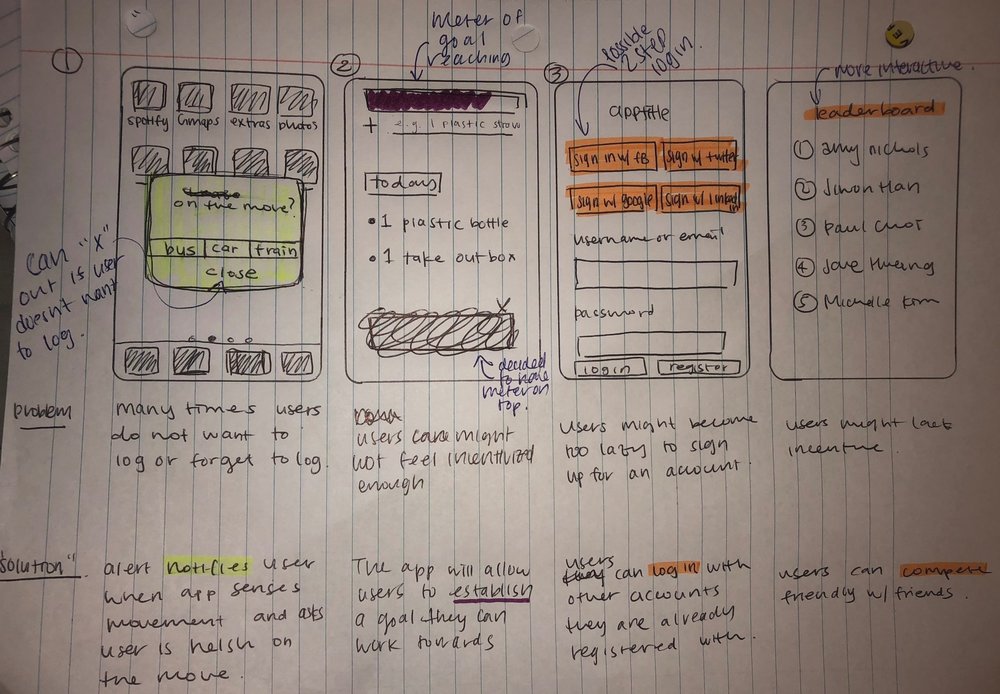 1
spotify Gmaps extras photos
on the move?
bus car train
close
can "x"
out is user
doesn't want
to log.
2
Meter of
goal
reaching
+ e.g. 1 plastic straw
todays
• 1 plastic bottle
• 1 take out box
decided
to have
meter on
top.
3
possible
2 step
login.
app title
sign in w/ fb sign w/ twitter
sign w/ google sign w/ linkedin
username or email
password
login register
more interactive.
leaderboard
1 amy nichols
2 Simon Han
3 paul choi
4 Jane Hwang
5 Michelle Kim
problem
many times users
do not want to
log or forget to log.
users might
not feel incentivized
enough
users might become
too lazy to sign
up for an account.
users might lack
incentive.
"solution"
alert notifies user
when app senses
movement and asks
user is he/sh on
the move.
The app will allow
users to establish
a goal they can
work towards
users
can log in with
other accounts
they are already
registered with.
users can compete
friendly w/ friends.